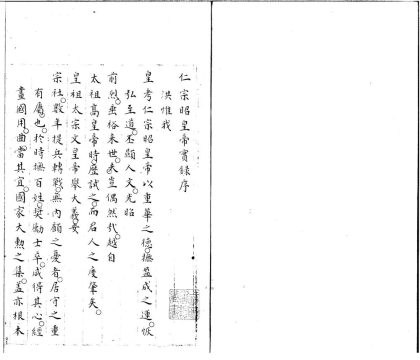 仁宗昭皇帝實錄序
洪惟我
皇考仁宗昭皇帝以重華之德撫盈成之運恢
弘至道丕顯人文光昭
前烈垂裕来世夫豈偶然哉越自
太祖高皇帝時歷試之而君人之度肇矣
皇祖太宗文皇帝舉大義安
宗社數年提兵轉戰無內顧之憂者居守之重
有屬也於時撫百姓奬勵士卒咸得其心經
畫國用曲當其宜國家大勲之集蓋亦根本